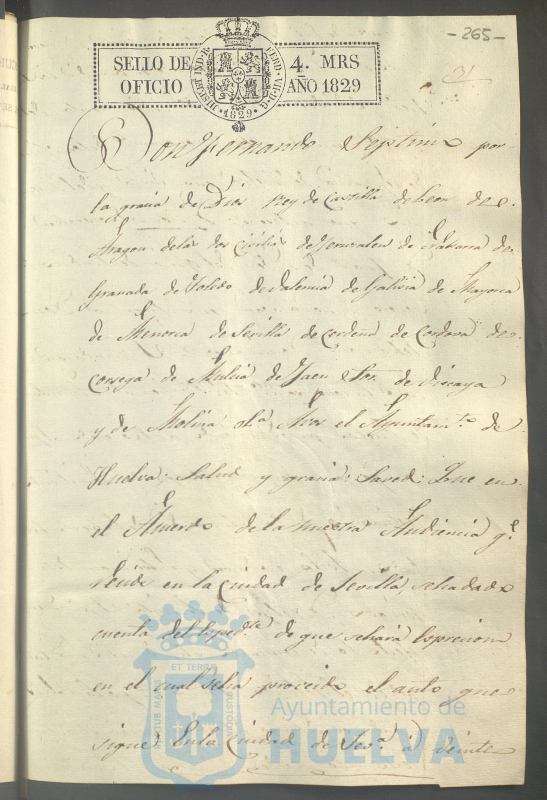 -265-
SELLO DE OFICIO
HISP. ET IND. R. FERD. VII. D. G.
·1829·
4. MRS
AÑO 1829
Don Fernando Septimo por
la gracia de Dios Rey de Castilla de Leon de
Aragon delas dos Cicilias de Jerusalen de Nabarra de
Granada de Toledo de Valencia de Galicia de Mayorca
de Menorca de Sevilla de Cerdena de Cordova de
Corcega de Mulcia de Jaen Sor. de Viscaya
y de Molina &.ª A vos el Ayuntam.to de
Huelva: Salud y gracia: Saved: Que en
el Acuerdo de la nuestra Audiencia q.e
recide en la Ciudad de Sevilla, seha dado
cuenta del Esped.te de que sehará Esprecion
en el cual seha proveido el auto que
sigue: En la Ciudad de Sev.ª á Veinte
ET TERRE
Ayuntamiento de
HUELVA